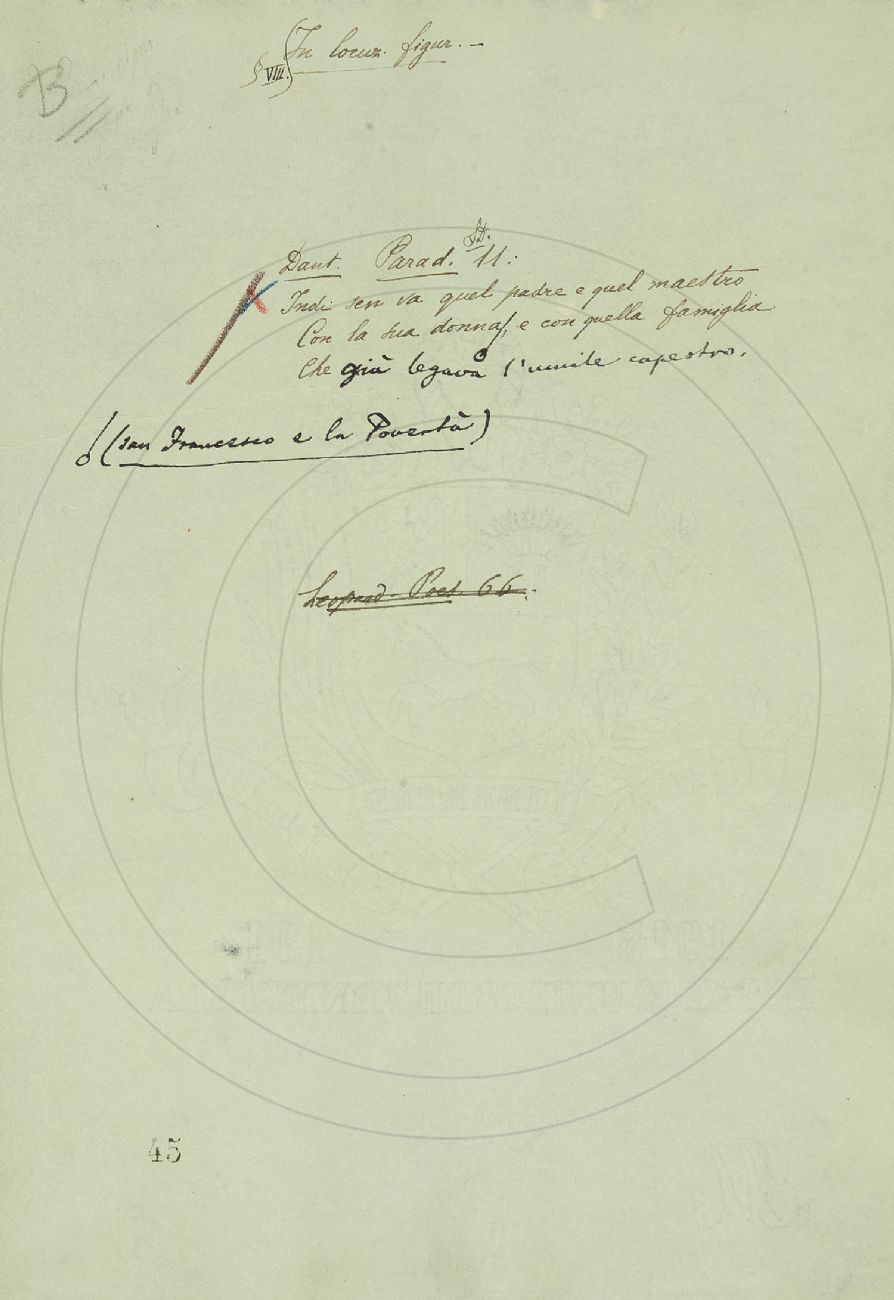 B
In locuz. figur. —
§ VIII.
St.
Dant. Parad. 11:
Indi sen va quel padre e quel maestro
Con la sua donna, e con quella famiglia
Che già legava l'umile capestro.
(san Francesco e la Povertà)
Leopard. Poes. 66.
45